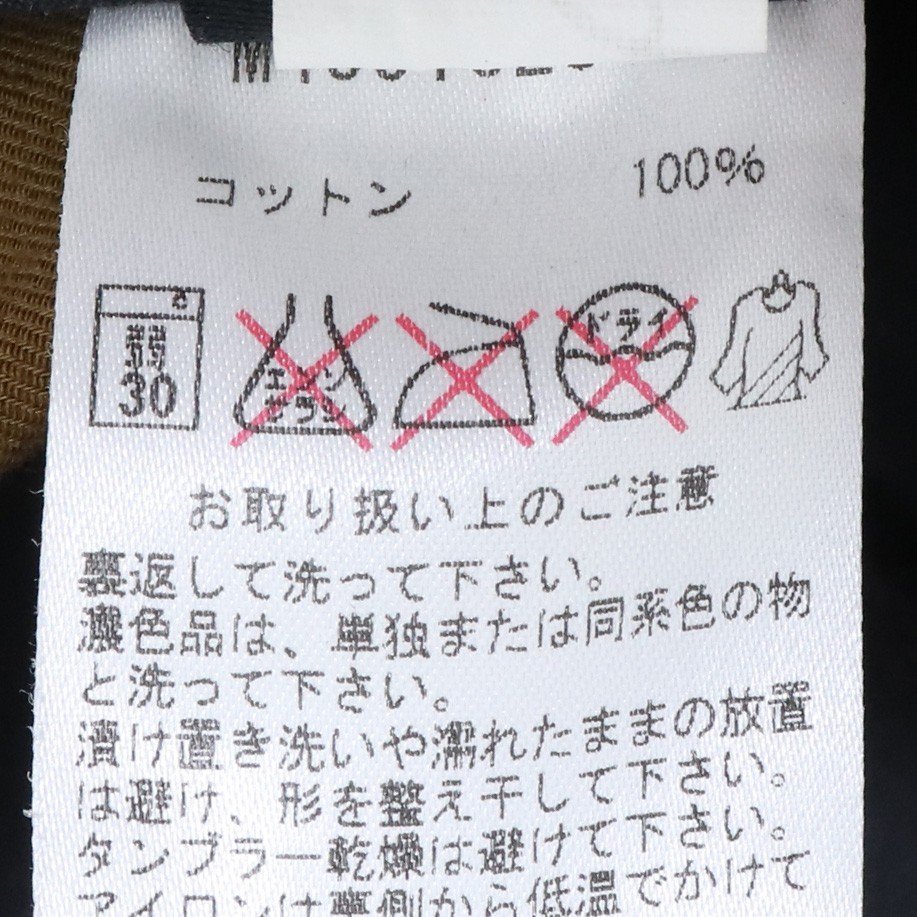 コットン 100%
弱 30 エンソ サラシ ドライ
お取り扱い上のご注意
裏返して洗って下さい。
濃色品は、単独または同系色の物
と洗って下さい。
漬け置き洗いや濡れたままの放置
は避け、形を整え干して下さい。
タンブラー乾燥は避けて下さい。
アイロンは裏側から低温でかけて